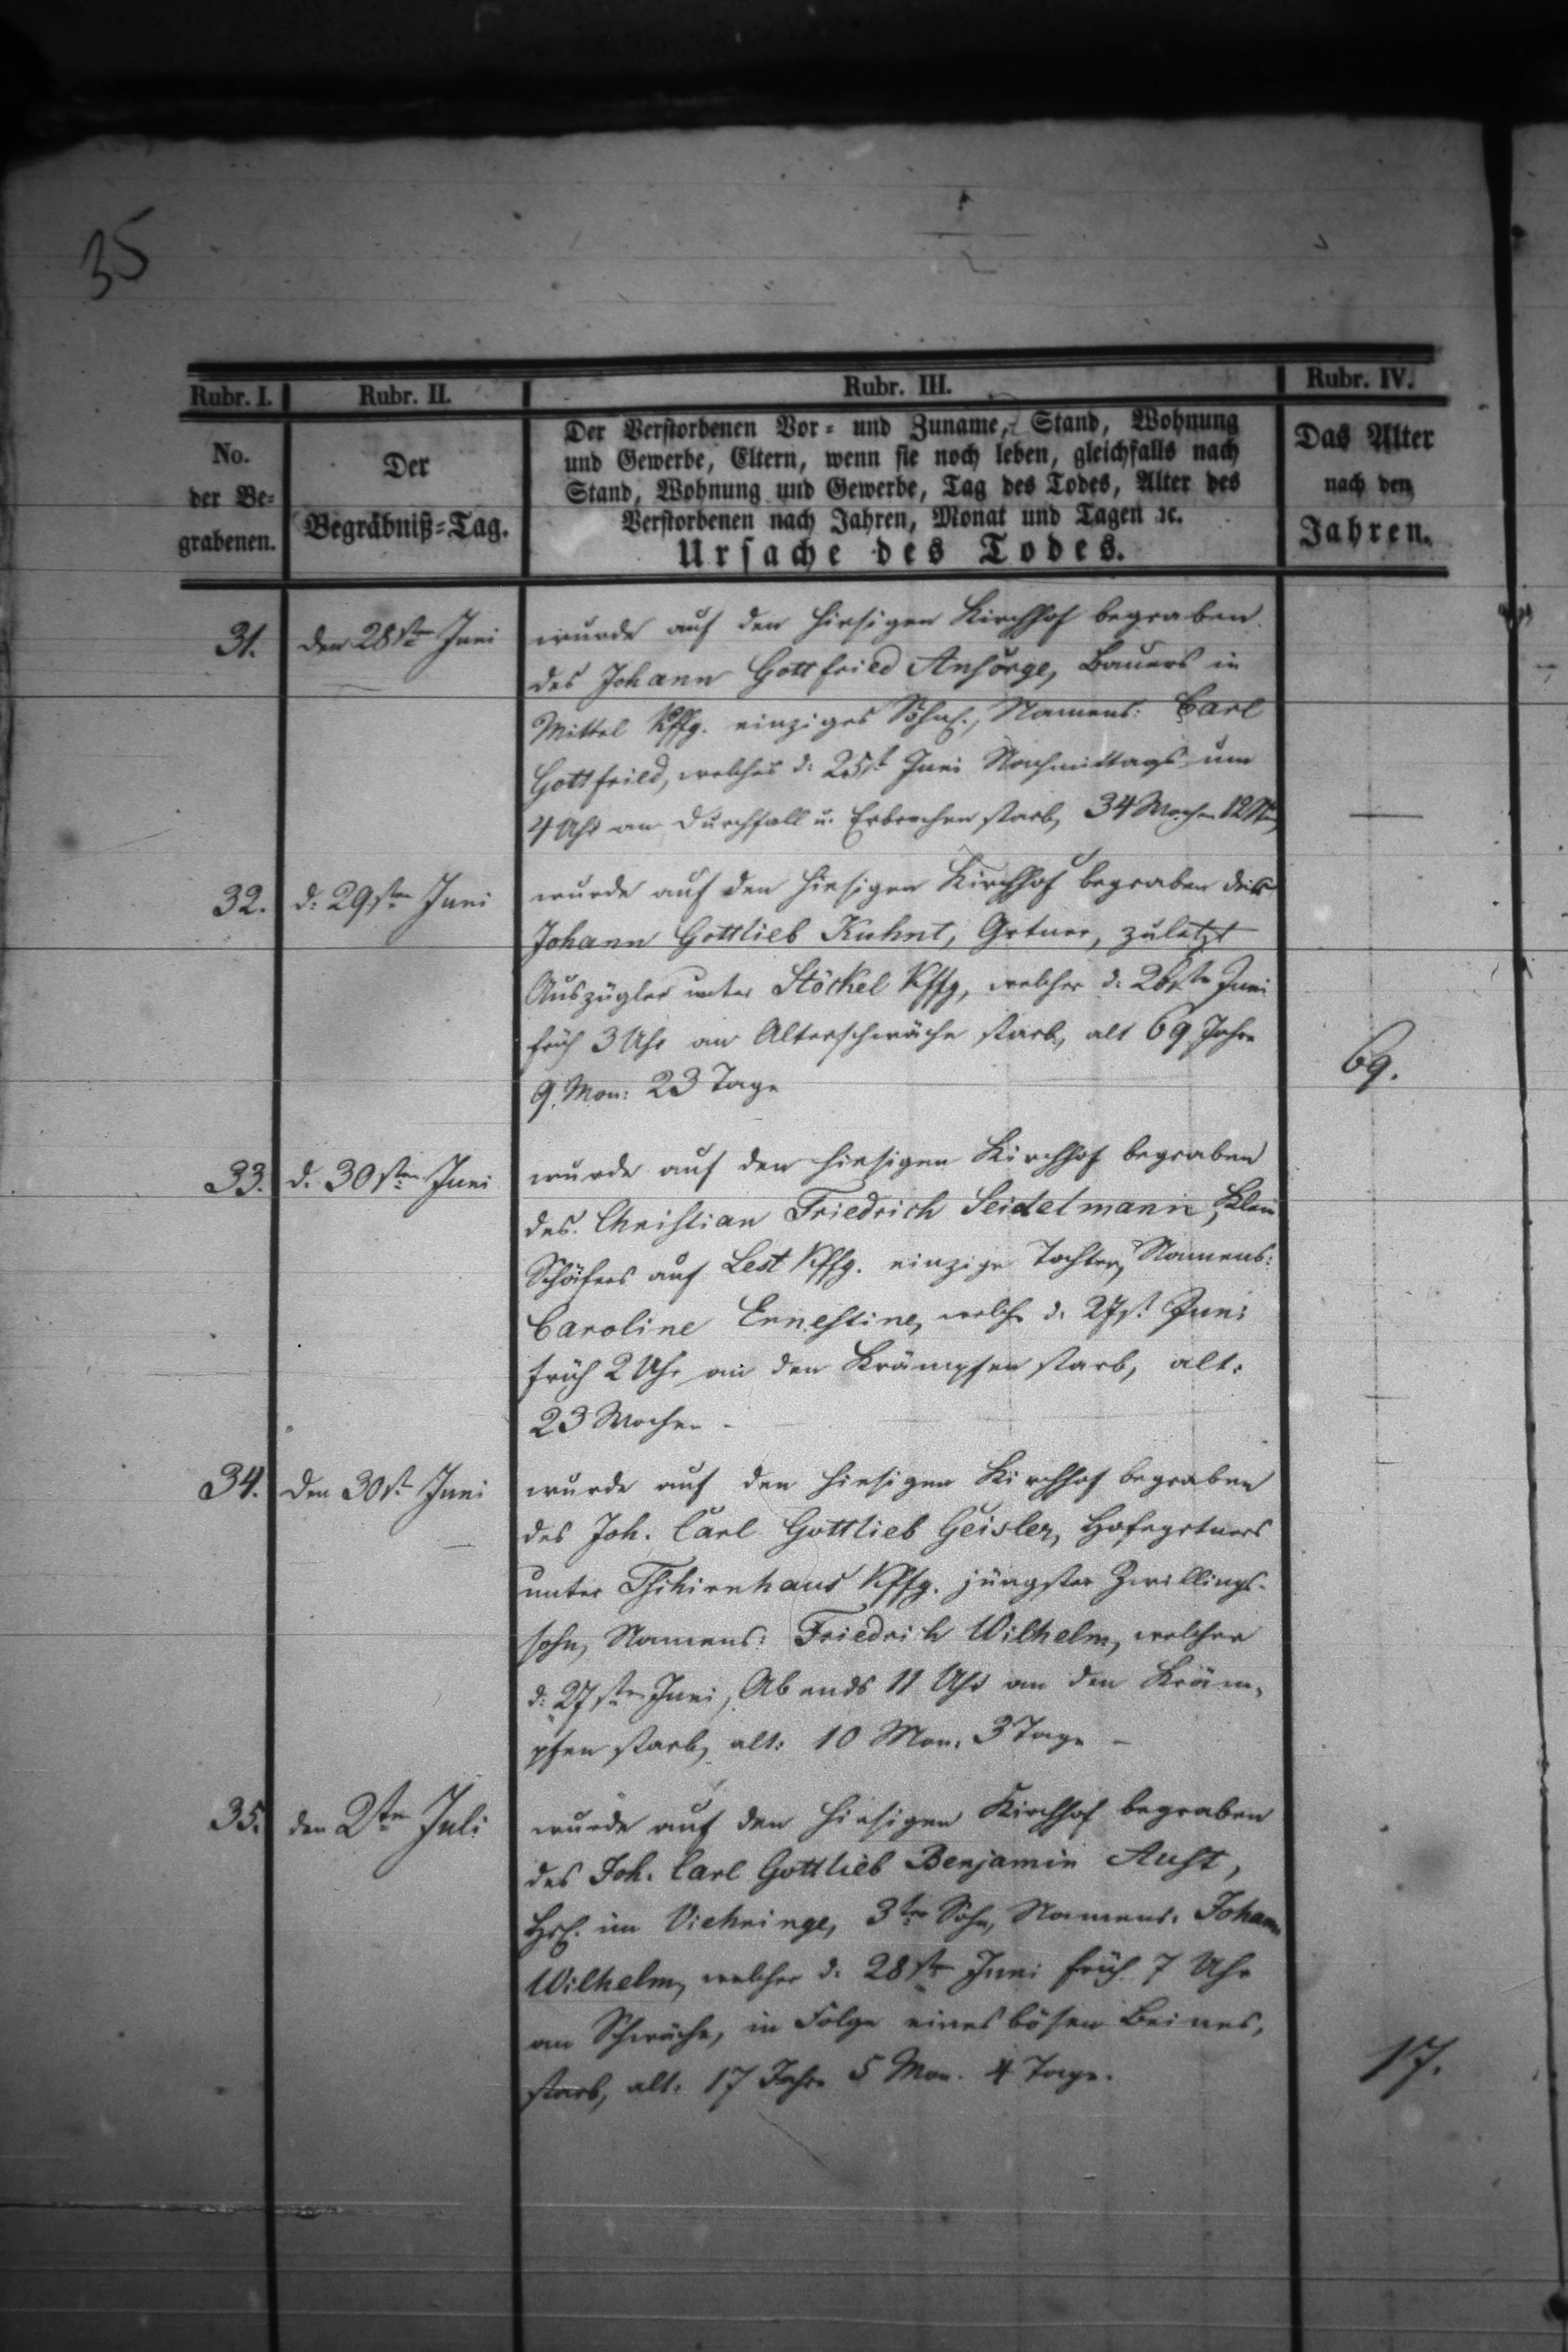 35
Rubr. I. Rubr. II. Rubr. III. Rubr. IV.
No. der Be= grabenen.
Der Begräbniß=Tag.
Der Verstorbenen Vor= und Zuname, Stand, Wohnung
und Gewerbe, Eltern, wenn sie noch leben, gleichfalls nach
Stand, Wohnung und Gewerbe, Tag des Todes, Alter des
Verstorbenen nach Jahren, Monat und Tagen ꝛc.
Ursache des Todes.
Das Alter nach den Jahren.
31. den 28st Juni wurde auf den hiesigen Kirchhof begraben
des Johann Gottfried Ansorge, Bauers in
Mittel Kffg. einziges Söhnch., Namens: Carl
Gottfried, welches d: 25st Juni Nachmittags um
4 Uhr an Durchfall u. Erbrechen starb, 34 Wochen 12 —
32. d: 29sten Juni wurde auf den hiesigen Kirchhof begraben
Johann Gottlieb Kuhnt, Grtner, zuletzt
Auszügler unter Stöckel Kffg, welcher d: 26sten Juni
früh 3 Uhr an Alterschwäche starb, alt 69 Jahre 69.
9. Mon: 23 Tage
33. d. 30sten Juni wurde auf den hiesigen Kirchhof begraben
des. Christian Friedrich Seidelmann, Klein
Schäfers auf Lest Kffg. einzige Tochter, Namens:
Caroline Ernestine, welche d: 27st Juni
früh 2 Uhr an den Krämpfen starb, alt:
23 Wochen -
34. den 30st Juni wurde auf den hiesigen Kirchhof begraben
des Joh. Carl Gottlieb Geisler, Hofegrtners
unter Kffg. jüngster Zwillings-
sohn, Namens: Friedrich Wilhelm, welcher
d: 27sten Juni, Abends 11 Uhr an den Kräm-
pfen starb, alt: 10 Mon. 3 Tage -
35. den 2ten Juli wurde auf den hiesigen Kirchhof begraben
des Joh. Carl Gottlieb Benjamin Aust,
Hrsl. im Viehringe, 3ter Sohn, Namens: Johann
Wilhelm, welcher d: 28st Juni früh 7 Uhr
an Schwäche, in Folge eines bösen Beines,
starb, alt: 17 Jahre 5 Mon. 4 Tage. 17.